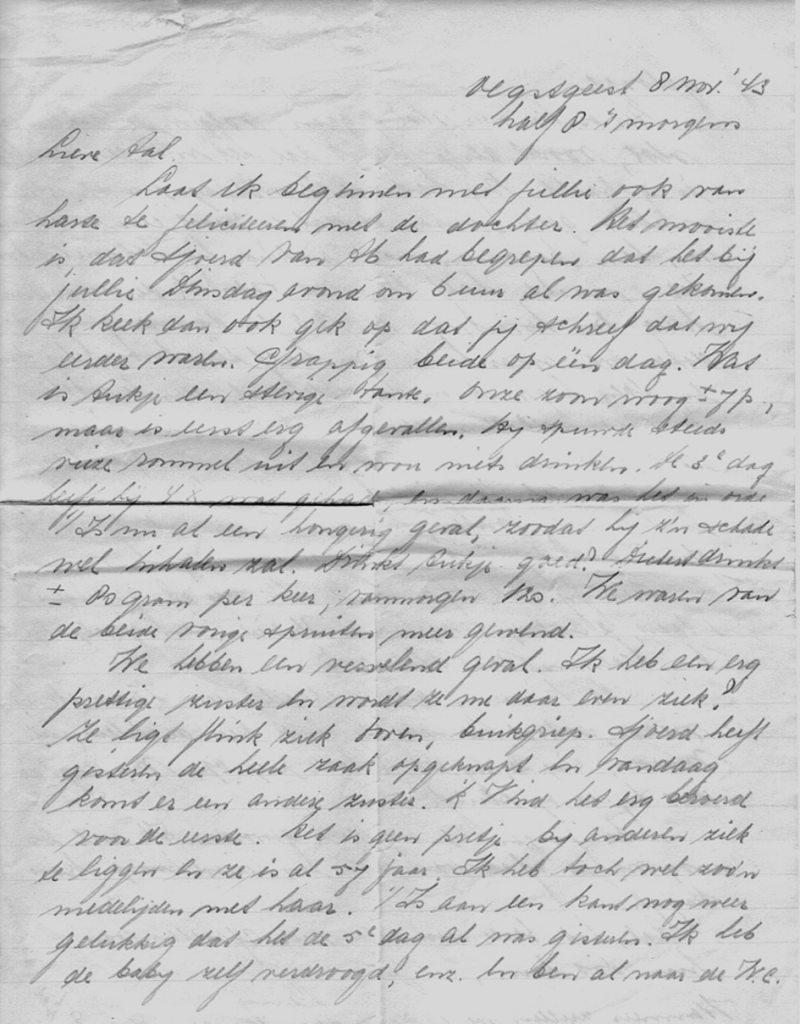 Oegstgeest 8 Nov. '43
half 8 's morgens
Lieve Aal,
Laat ik beginnen met jullie ook van
harte te feliciteeren met de dochter. Het mooiste
is dat Sjoerd van Ab had begrepen dat het bij
jullie Dinsdag avond om 6 uur al was gekomen.
Ik keek dan ook gek op dat jij schreef dat wij
eerder waren. Grappig beide op één dag. Wat
is Aukje een stevige tante. Onze zoon woog ± 7 p,
maar is eerst erg afgevallen. Hij spuwde steeds
vieze rommel uit en wou niets drinken. De 3e dag
heeft hij 4 x was gehad, en daarna was het in orde
't Is nu al een hongerig geval, zoodat hij z'n schade
wel inhalen zal. Drinkt Aukje goed? drinkt
± 80 gram per keer, vanmorgen 120. We waren van
de beide vorige spruiten meer gewend.
We hebben een vervelend geval. Ik heb een erg
prettige zuster en wordt ze me daar even ziek?
Ze ligt flink ziek boven, buikgriep. Sjoerd heeft
gisteren de heele zaak opgeknapt en vandaag
komt er een andere zuster. 'k Vind het erg beroerd
voor de eerste. Het is geen pretje bij anderen ziek
te liggen en ze is al 57 jaar. Ik heb toch wel zoo'n
medelijden met haar. 't Is aan een kant nog weer
gelukkig dat het de 5e dag al was gisteren. Ik heb
de baby zelf verdroogd, enz. en ben al naar de W.C.